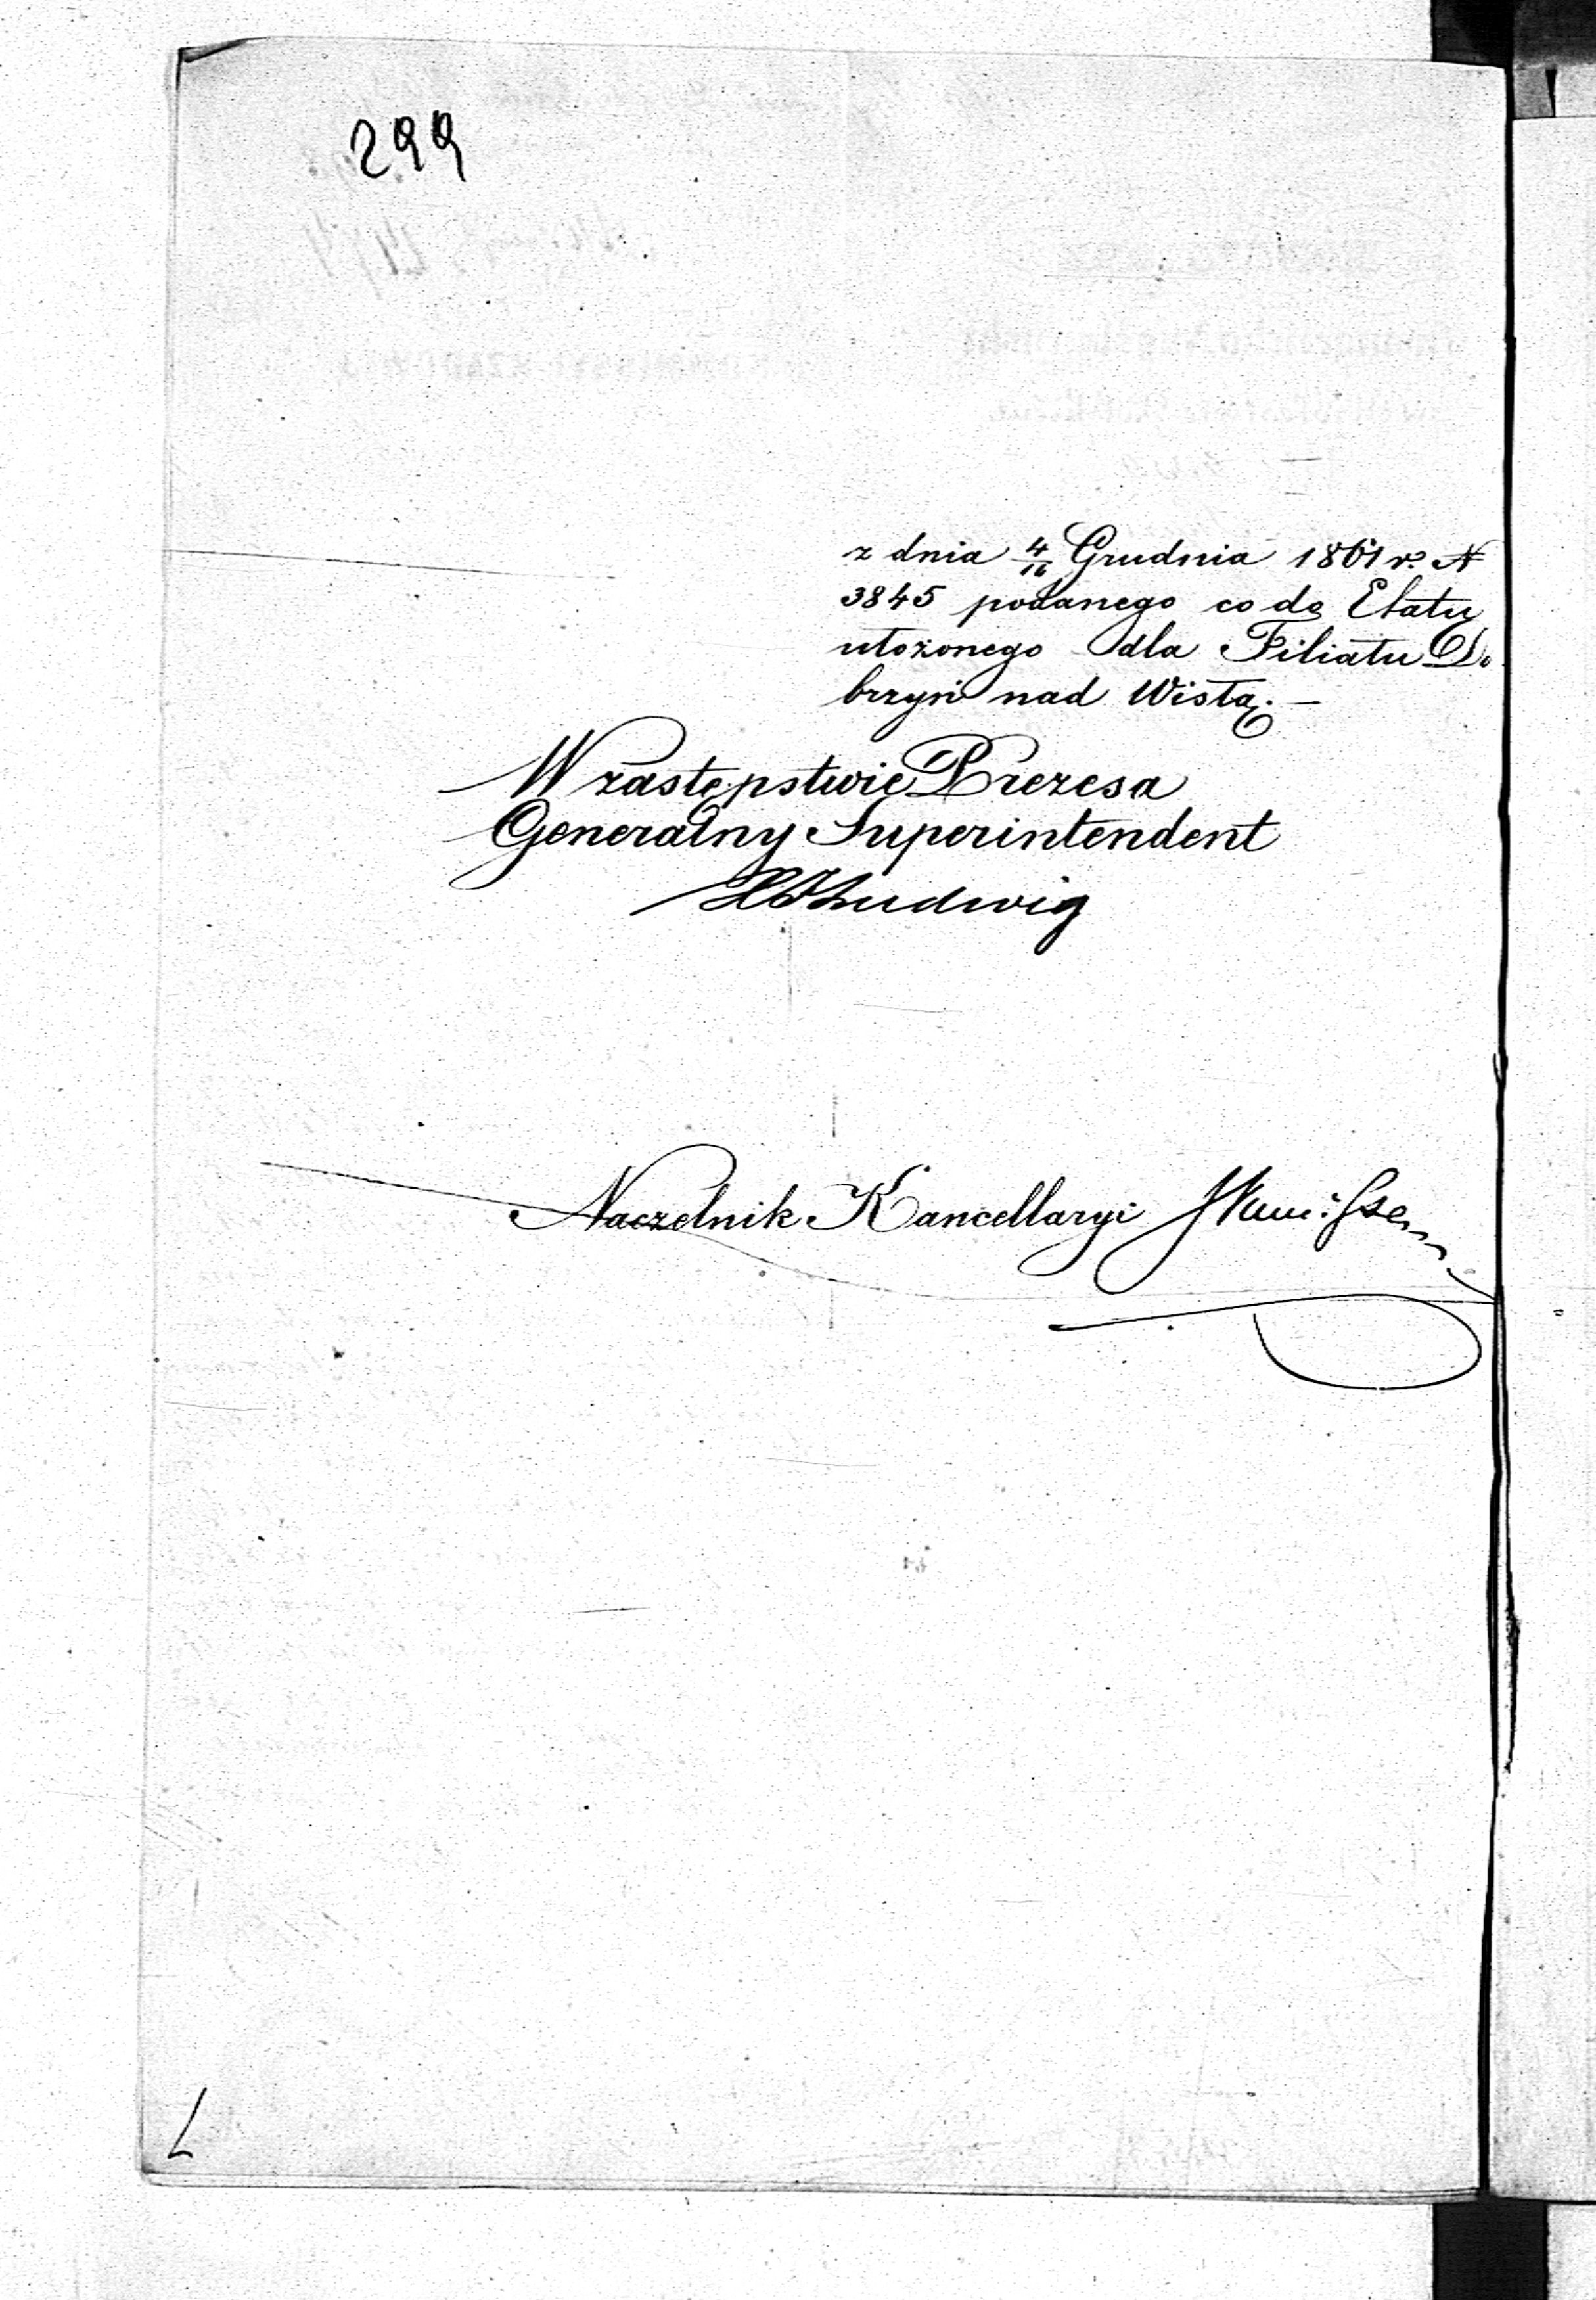 299
z dnia 4/16 Grudnia 1861 r. N
3845 podanego co do Etatu
ułożonego dla Filiału Do
brzyń nad Wisłą. —
W zastępstwie Prezesa
Generalny Superintendent
Ludwig
Naczelnik Kancellaryi